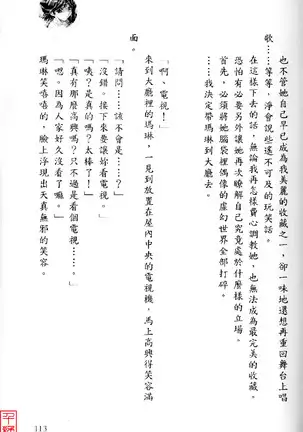 也不管她自己早已成為我美麗的收藏之一，卻一味地還想再重回舞台上唱
歌……等等，淨會說些遙不可及的玩笑話。
在這樣下去的話，無論我再怎樣費心調教她，也無法成為最完美的收藏。
恐怕有必要另外讓她再次瞭解自己究竟處於什麼樣的立場。
首先，必須將她腦袋裡偶像的虛幻世界全部打碎。
……我決定帶瑪琳到大廳去。
「啊、電視！」
來到大廳裡的瑪琳，一見到放置在屋內中央的電視機，馬上高興得笑容滿
面。
「請問……該不會是……？」
「沒錯。接下來要讓妳看電視。」
「咦？是真的嗎？太棒了！」
「真有那麼高興嗎？只不過是看個電視……。」
「嗯。因為人家好久沒看了嘛。」
瑪琳笑嘻嘻的，臉上浮現出天真無邪的笑容。
113